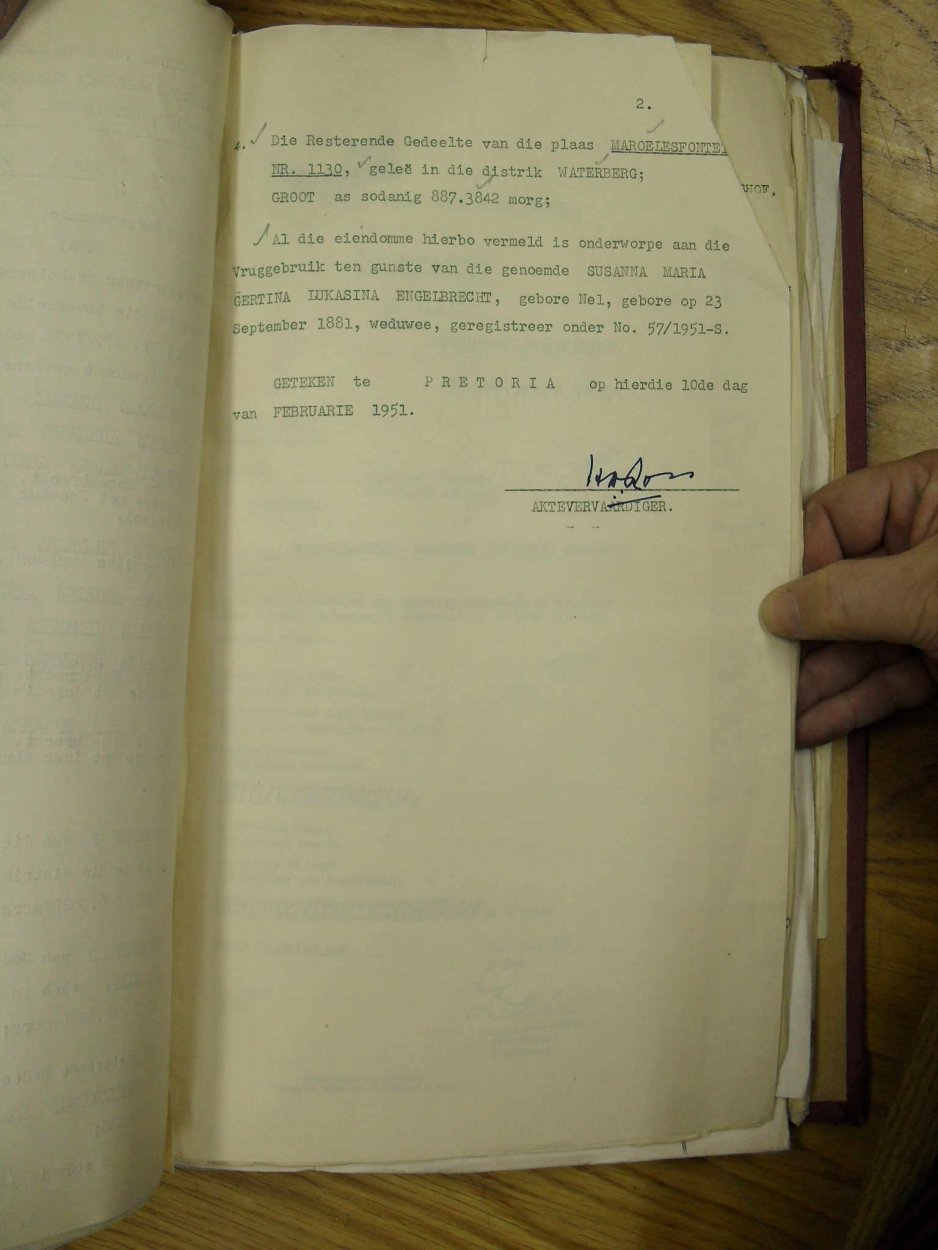 2.
4. Die Resterende Gedeelte van die plaas MAROELESFONTEI
NR. 1130, geleë in die distrik WATERBERG;
HOF,
GROOT as sodanig 887.3842 morg;
Al die eiendomme hierbo vermeld is onderworpe aan die
Vruggebruik ten gunste van die genoemde SUSANNA MARIA
GERTINA LUKASINA ENGELBRECHT, gebore Nel, gebore op 23
September 1881, weduwee, geregistreer onder No. 57/1951-S.
GETEKEN te P R E T O R I A op hierdie 10de dag
van FEBRUARIE 1951.
AKTEVERVAARDIGER.